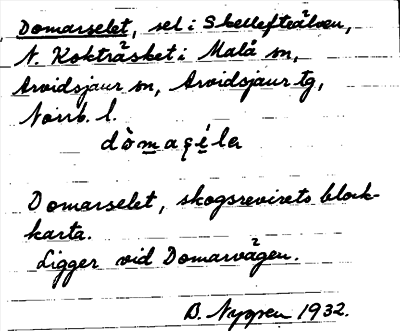 Domarselet, sel i Skellefteälven,
N. Kokträsket i Malå sn,
Arvidsjaur sn, Arvidsjaur tg,
Norrb. l.
Domarselet, skogsrevirets block-
karta.
Ligger vid Domarvägen.
B. Nygren 1932.